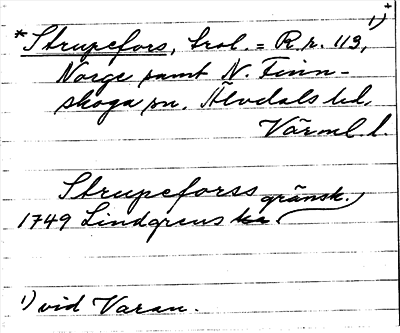 1)+
*Strupefors, trol. = R.r. 113,
Norge samt N. Finn-
skoga sn. Älvdals hd,
Värml. l.
Strupeforss gränsk.
1749 Lindgrens ka.
1) vid Varan.